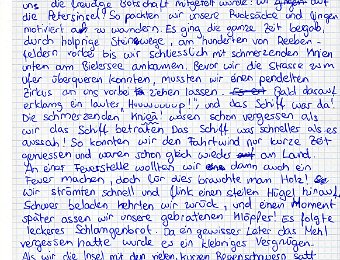 uns die freudige Botschaft mitgeteilt wurde: wir gingen auf
die Petersinsel! So packten wir unsere Rucksäcke und fingen
motiviert an zu wandern. Es ging die ganze Zeit bergab,
durch holprige Steinwege, am hunderten von Reben-
feldern vorbei bis wir schliesslich mit schmerzenden Knien
unten am Bielersee ankamen. Bevor wir die Strasse zum
ufer überqueren konnten, mussten wir einen pendelten
Zirkus an uns vorbei ziehen lassen. Bald darauf
erklang ein lautes, und das Schiff war da!
Die schmerzenden Knien waren schon vergessen als
wir das Schiff betraten. Das Schiff was schneller als es
aussah! So konnten wir den Fahrtwind nur kurze Zeit
geniessen und waren schon gleich wieder an Land.
An einer Feuerstelle wollten wir dann auch ein
Feuer machen, doch für dies brauchte man Holz!
Wir strömten schnell und flink einen steilen Hügel hinauf.
Schwer beladen kehrten wir zurück, und einen Moment
später assen wir unsere gebratenen Klöpfer! Es folgte
leckeres Schlangenbrot. Da ein gewisser Leiter das Mehl
vergessen hatte wurde es ein klebriges Vergnügen.
Als wir die Insel mit den vielen kurzen Regenschauern satt